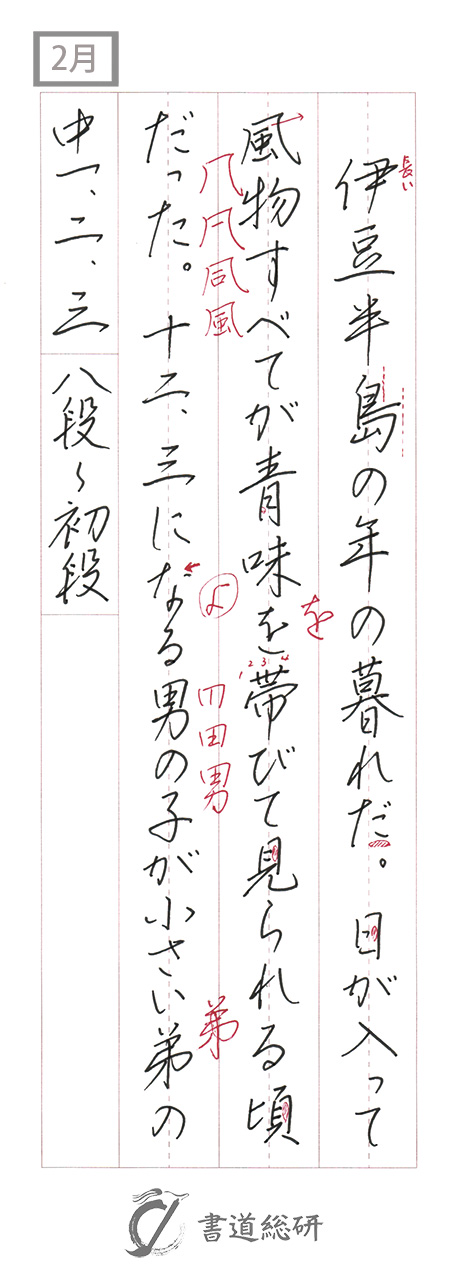 2月
伊豆半島の年の暮れだ。日が入って
長い
風物すべてが青味を帯びて見られる頃
を
1 2 3 4
几 凨 同 風
だった。十二、三になる男の子が小さい弟の
よ
田 男
弟
中一、二、三
八段〜初段
書道総研